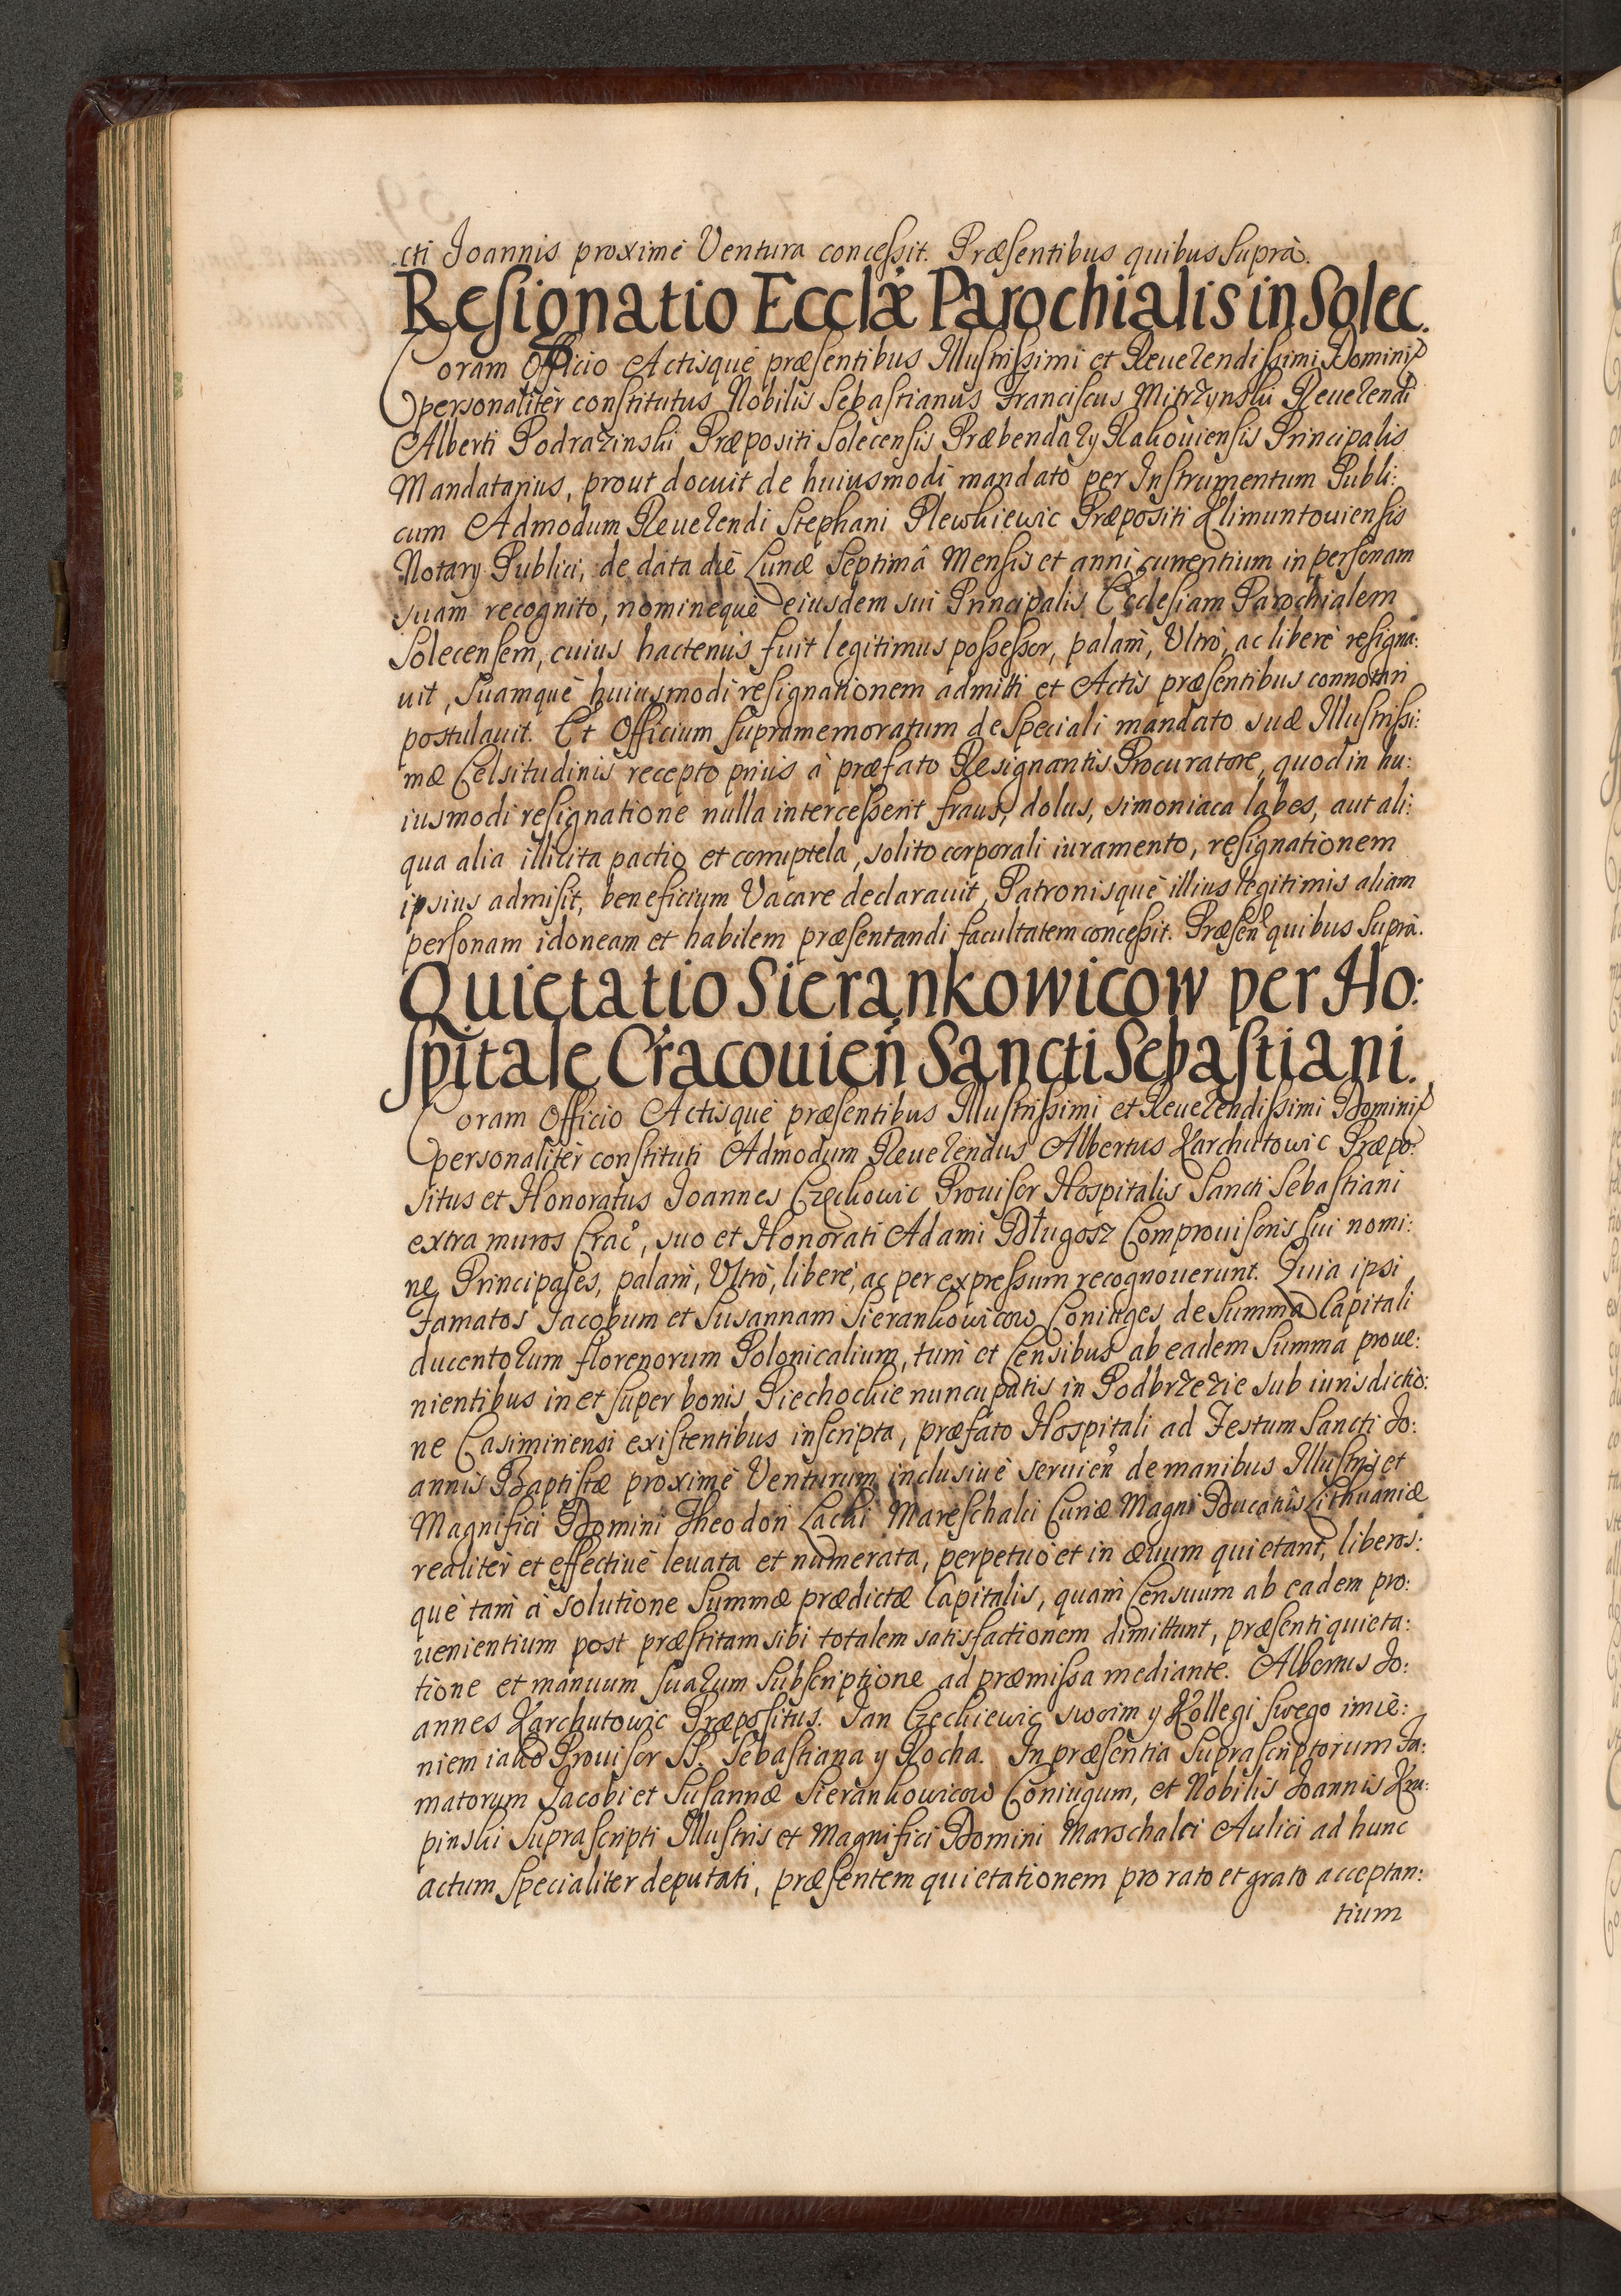 cti Joannis proximè Ventura conceſsit. Præſentibus quibus ſuprà.
Reſignatio Ecclæ Parochialis in Solec.
Coram Officio Actisquè præſentibus Illuſtriſsimi et Reuerendiſsimi Domini
personalitèr conſtitutus Nobilis Sebaſtianus Franciſcus Mitrzynski Reuerendi
Alberti Podrazinski Præpositi Solecensis Præbendarÿ Rakouiensis Principalis
Mandatarius, prout docuit de huiusmodi mandato per Inſtrumentum Publi:
cum Admodum Reuerendi Stephani Plewkiewic Præpositi Klimuntouiensis
Notarÿ Publici, de data diè Lunæ Septimâ Mensis et anni currentium in perſonam
suam recognito, nominequè eiusdem sui Principalis Eccleſiam Parochialem
Solecenſem, cuius hactenùs fuit legitimus poſseſsor, palam̀, Vltrò, ac liberè reſigna:
uit, Suamquè huiusmodi reſignationem admitti et Actis præſentibus connotari
postulauit. Et Officium ſupramemoratum de ſpeciali mandato suæ Illuſtriſsi:
mæ Celsitudinis recepto priùs à præfato Resignantis Procuratore, quod in hu:
iusmodi reſignatione nulla interceſserit fraus, dolus, simoniaca labes, aut ali:
qua alia illicita pactio et corruptela, solito corporali iuramento, reſignationem
ipsius admiſit, beneficium Vacare declarauit, Patronisquè illius legitimis aliam
perſonam idoneam et habilem præſentandi facultatem conceſsit. Præſen quibus ſuprà.
Quietatio Sierankowicow per Ho:
ſpitale Cracouien̄ Sancti Sebaſtiani.
Coram Officio Actisquè præſentibus Illuſtriſsimi et Reuerendiſsimi Domini
personalitèr conſtituti Admodum Reuerendus Albertus Karchutowic Præpo:
situs et Honoratus Joannes Czechowic Prouiſor Hoſpitalis Sancti Sebaſtiani
extra muros Crac̊, suo et Honorati Adami Długosz Comprouiſoris ſui nomi:
ne Principales, palam̀, Vltrò, liberè, ac per expreſsum recognouerunt. Quia ipsi
Famatos Jacobum et Susannam Sierankowicow Coniuges de Summa Capitali
ducentorum florenorum Polonicalium, tum̀ et Censibus ab eadem Summa proue:
nientibus in et ſuper bonis Piechockie nuncupatis in Podbrzezie sub iurisdictio:
ne Casimiriensi exiſtentibus inſcripta, præfato Hospitali ad Festum Sancti Jo:
annis Baptiſtæ proximè Venturum inclusiuè seruien̊ de manibus Illuſtris et
Magnifici Domini Theodori Lacki Mareſchalci Curiæ Magni Ducatûs Lithuaniæ
realitèr et effectiuè leuata et numerata, perpetuò et in æuum quietant, liberos:
què tam̀ à solutione Summæ prædictæ Capitalis, quam̀ Censuum ab eadem pro:
uenientium post præſtitam sibi totalem satisfactionem dimittunt, præſenti quieta:
tione et manuum ſuarum ſubſcriptione ad præmiſsa mediante. Albertus Jo:
annes Karchutowic Præpoſitus. Jan Czechiewic swoim y Kollegi ſwego imie:
niem iako Prouiſor SS. Sebaſtiana y Rocha. In præſentia ſupraſcriptorum Fa:
matorum Jacobi et Suſannæ Sierankowicow Coniugum, et Nobilis Joannis Kru:
pinski Supraſcripti Illuſtris et Magnifici Domini Marschalci Aulici ad hunc
actum ſpecialiter deputati, præſentem quietationem pro rato et grato acceptan:
tium